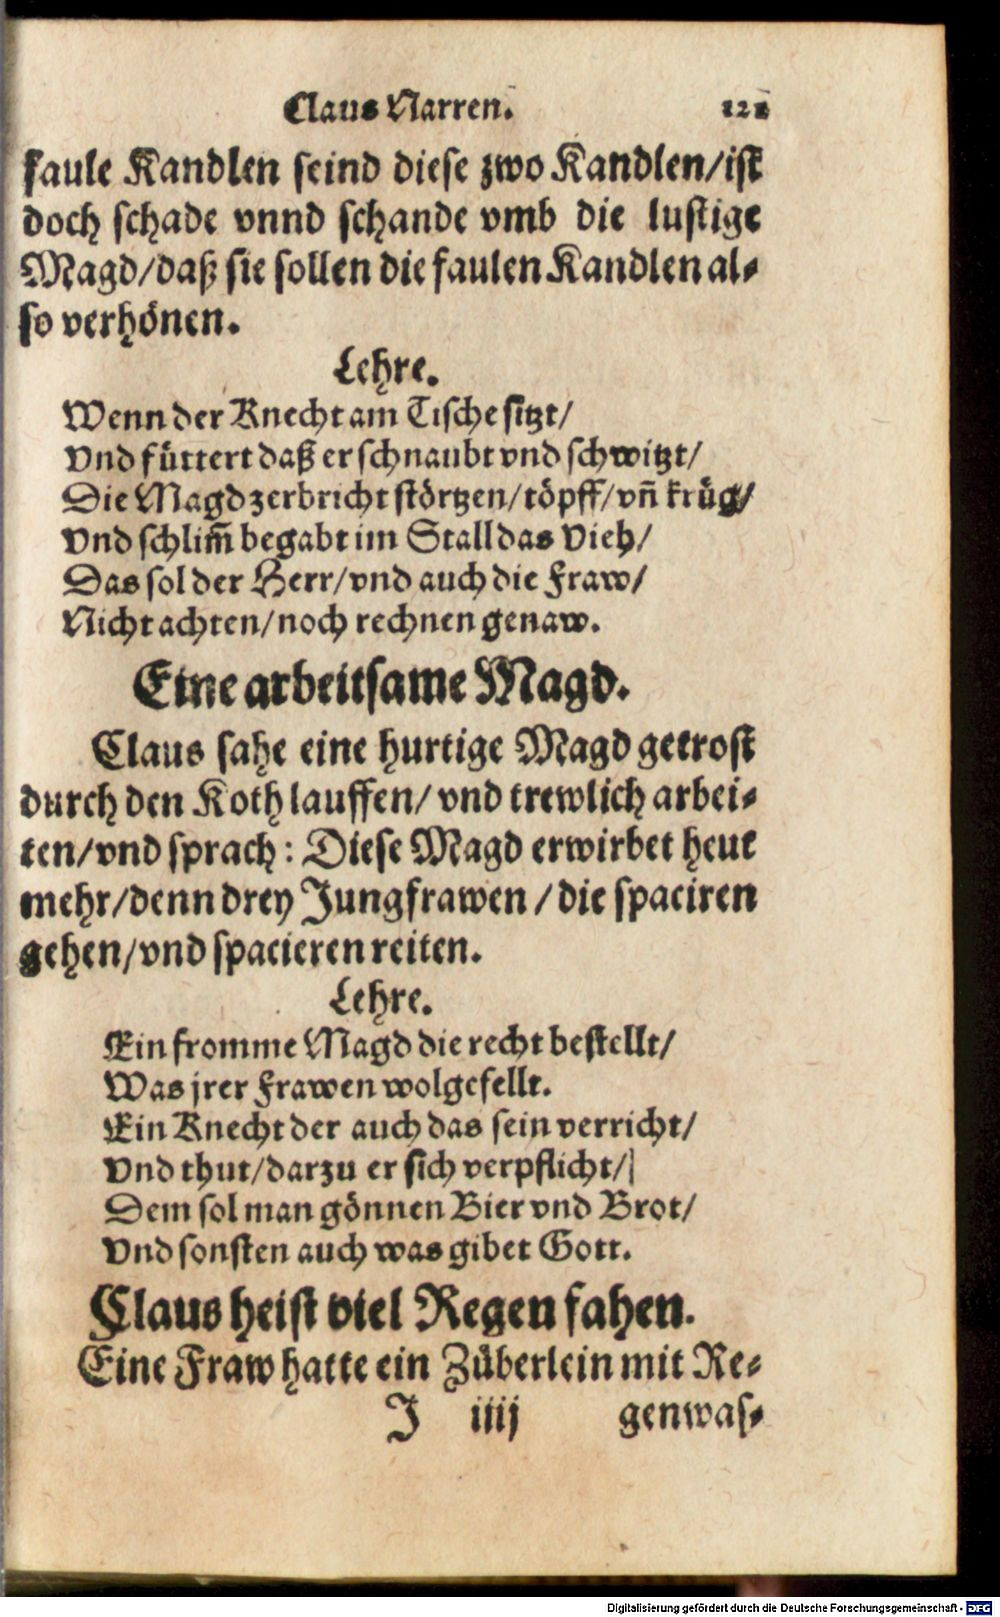 Claus Narren. 121
faule Kandlen seind diese zwo Kandlen/ist
doch schade vnnd schande vmb die lustige
Magd/daß sie sollen die faulen Kandlen al-
so verhönen.
Lehre.
Wenn der Knecht am Tische sitzt/
Vnd füttert daß er schnaubt vnd schwitzt/
Die Magd zerbricht störtzen/töpff/vñ krüg/
Vnd schlim̃ begabt im Stall das Vieh/
Das sol der Herr/vnd auch die Fraw/
Nicht achten/noch rechnen genaw.
Eine arbeitsame Magd.
Claus sahe eine hurtige Magd getrost
durch den Koth lauffen/ vnd trewlich arbei-
ten/vnd sprach: Diese Magd erwirbet heut
mehr/denn drey Jungfrawen/die spaciren
gehen/vnd spacieren reiten.
Lehre.
Ein fromme Magd die recht bestellt/
Was jrer Frawen wolgefellt.
Ein Knecht der auch das sein verricht/
Vnd thut/darzu er sich verpflicht/
Dem sol man gönnen Bier vnd Brot/
Vnd sonsten auch was gibet Gott.
Claus heist viel Regen fahen.
Eine Fraw hatte ein Züberlein mit Re-
J iiij genwas-
Digitalisierung gefördert durch die Deutsche Forschungsgemeinschaft - DFG